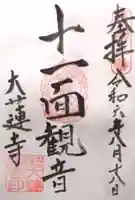 奉拝
令和六年八月十八日
十一面観音
大蓮寺